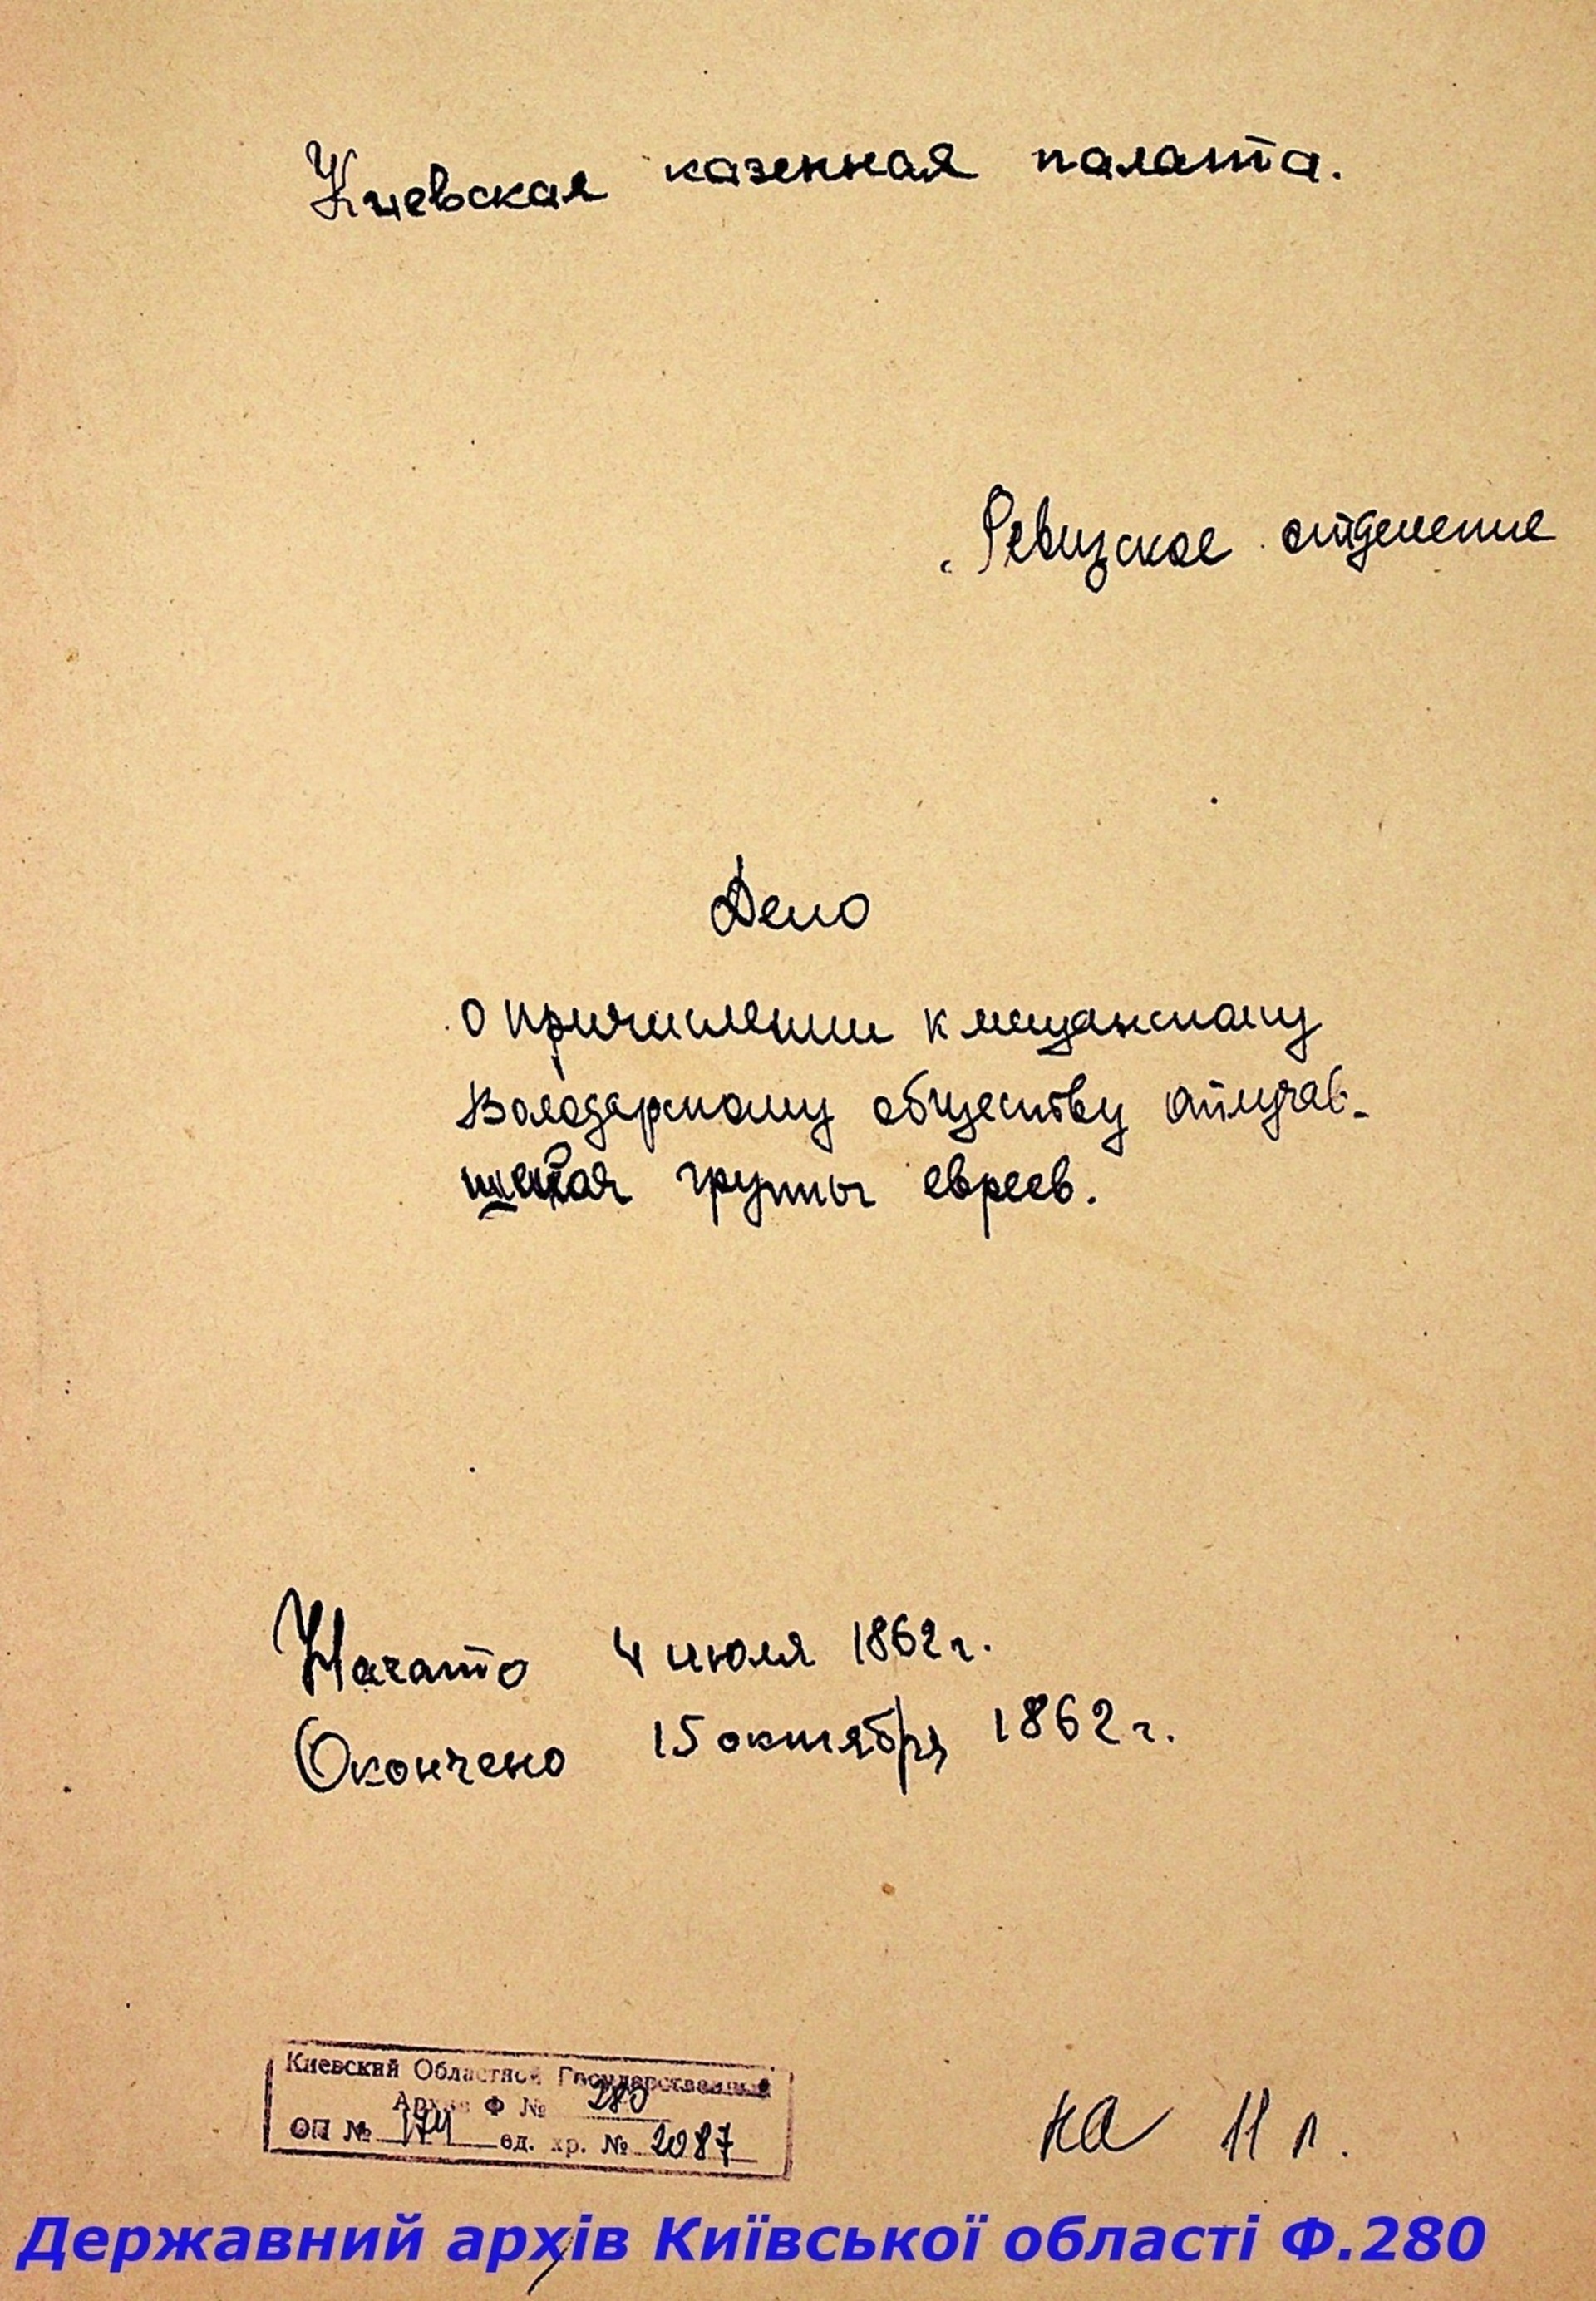 Киевская казенная палата.
Ревизское отделение
Дело
о причислении к мещанскому
Володарскому обществу отлучав-
шейся группы евреев.
Начато 4 июля 1862 г.
Окончено 15 октября 1862 г.
Киевский Областной Государственный
Архив Ф № 280
ОП № 174 ед. хр. № 2087
на 11 л.
Державний архів Київської області Ф.280